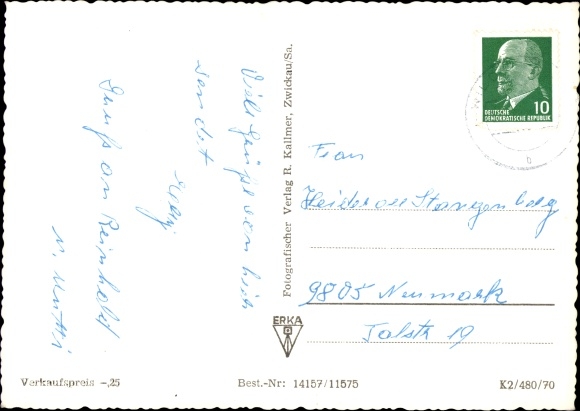 Viele Grüße von hier
sendet
Gruß an Reinhold
u. Mutti
Fotografischer Verlag R. Kallmer, Zwickau/Sa.
DEUTSCHE
DEMOKRATISCHE REPUBLIK
10
Frau
Heiderose Stangenberg
9805 Neumark
Talstr 19
ERKA
Verkaufspreis -,25
Best.-Nr: 14157/11575
K2/480/70